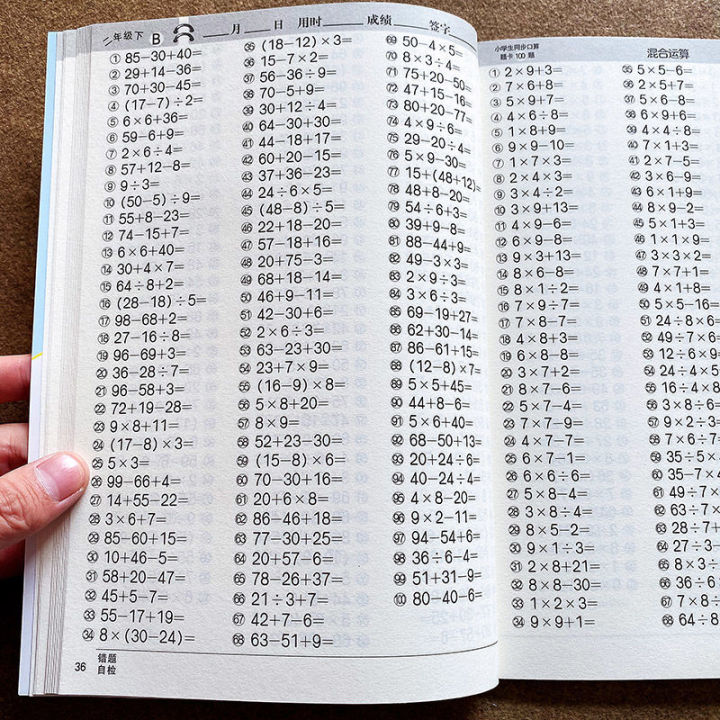 二年级下 B 月 日 用时 成绩 签字
① 85−30+40=
② 29+14−36=
③ 70+30−45=
④ (17−7)÷2=
⑤ 6×6+36=
⑥ 59−6+9=
⑦ 2×6÷4=
⑧ 57+12−8=
⑨ 9÷3=
⑩ (50−5)÷9=
⑪ 55+8−23=
⑫ 74−15+7=
⑬ 6×6+40=
⑭ 30+4×7=
⑮ 64÷8+2=
⑯ (28−18)÷5=
⑰ 98−68+2=
⑱ 27−16÷8=
⑲ 96−69+3=
⑳ 36−28÷7=
㉑ 96−58+3=
㉒ 72+19−28=
㉓ 9×8+11=
㉔ (17−8)×3=
㉕ 5×3=
㉖ 99−66+4=
㉗ 14+55−22=
㉘ 3×6+7=
㉙ 85−60+15=
㉚ 10+46−5=
㉛ 58+20−47=
㉜ 45+5−7=
㉝ 55−17+19=
㉞ 8×(30−24)=
㉟ (18−12)×3=
㊱ 15−7×2=
㊲ 56−36÷9=
㊳ 70−5+9=
㊴ 30+12÷4=
㊵ 64−30+30=
㊶ 44−18+17=
㊷ 60+20−15=
㊸ 37+36−23=
㊹ 24÷6×5=
㊺ (48−8)÷5=
㊻ 22+18−20=
㊼ 57−18+16=
㊽ 20+75−3=
㊾ 68+18−14=
㊿ 46+9−11=
51 42−30+6=
52 2×6÷3=
53 63−23+30=
54 23+7×9=
55 (16−9)×8=
56 5×8+20=
57 8×9=
58 52+23−30=
59 (15−8)×6=
60 70−30+16=
61 20+6×8=
62 86−46+18=
63 77−30+25=
64 20+57−6=
65 78−26+37=
66 21÷3+7=
67 42+7−6=
68 63−51+9=
69 50−4×5=
70 8×3÷4=
71 75+20−50=
72 47+15−16=
73 80+20−77=
74 4×9÷6=
75 29−20÷4=
76 5×9−30=
77 15+(48+12)=
78 48+8−20=
79 54÷6+3=
80 39+9−8=
81 88−44+9=
82 49−3×3=
83 2×9÷3=
84 3×6÷3=
85 69−19+27=
86 62+30−14=
87 86−61+15=
88 (12−8)×7=
89 5×5+45=
90 44+8−6=
91 5×6+40=
92 68−50+13=
93 20+24÷6=
94 40−24÷4=
95 4×8−20=
96 9×2−11=
97 94−54+6=
98 36÷6−4=
99 51+31−9=
100 80−40−6=
36 错题
自检
小学生同步口算
题卡 100 题
混合运算
① 2×9+3=
② 7×6+8=
③ 5×9+7=
④ 4×6÷8=
⑤ 1×8+9=
⑥ 9×9−10=
⑦ 1×7×3=
⑧ 2×4×3=
⑨ 3×4÷2=
⑩ 3×9+13=
⑪ 4×9−6=
⑫ 6×9−8=
⑬ 9×3+13=
⑭ 8×6−8=
⑮ 8×1÷2=
⑯ 7×9÷7=
⑰ 7×8−7=
⑱ 4×8+3=
⑲ 6×8−8=
⑳ 3×7+2=
㉑ 8×7−6=
㉒ 5×7−4=
㉓ 7×7−9=
㉔ 4×7−7=
㉕ 6×7−1=
㉖ 6×6÷6=
㉗ 5×8−4=
㉘ 3×8÷4=
㉙ 8×5−2=
㉚ 9×1÷3=
㉛ 2×8+21=
㉜ 8×8−30=
㉝ 1×2×3=
㉞ 9×9+1=
㉟ 5×5−6=
㊱ 2×5+7=
㊲ 5×6−8=
㊳ 6×9+6=
㊴ 4×4÷8=
㊵ 7×1+3=
㊶ 2×7−5=
㊷ 3×6−9=
㊸ 6×1+9=
㊹ 8×9−2=
㊺ 5×1+3=
㊻ 1×1×9=
㊼ 3×3×2=
㊽ 7×7+1=
㊾ 4×1+8=
㊿ 5×5−16=
51 24÷8×6=
52 49÷7×6=
53 12÷6×9=
54 24÷4×5
55 16÷4×8
56 3×8÷6=
57 9×2÷3=
58 7×6÷7=
59 35÷5×
60 35−7×
61 49÷7×
62 63÷7×
63 28÷7+
64 27÷3−
65 8×8÷
66 36÷6
67 7×8÷
68 64÷8